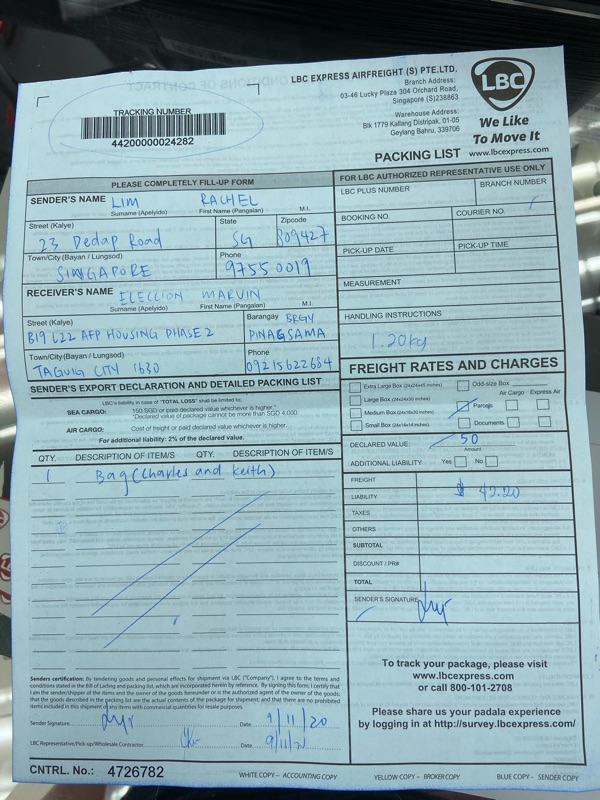 LBC EXPRESS AIRFREIGHT (S) PTE.LTD.
Branch Address:
03-46 Lucky Plaza 304 Orchard Road,
Singapore (S)238863
Warehouse Address:
Blk 1779 Kallang Distripak, 01-05
Geylang Bahru, 339706
LBC
We Like
To Move It
www.lbcexpress.com
TRACKING NUMBER
44200000024282
PACKING LIST
PLEASE COMPLETELY FILL-UP FORM
SENDER'S NAME LIM RACHEL
Surname (Apelyido) First Name (Pangalan) M.I.
Street (Kalye) State Zipcode
23 Dedap Road SG 809427
Town/City (Bayan / Lungsod) Phone
SINGAPORE 97550019
RECEIVER'S NAME ELECCION MARVIN
Surname (Apelyido) First Name (Pangalan) M.I.
Street (Kalye) Barangay BRGY
B19 L22 AFP HOUSING PHASE 2 PINAGSAMA
Town/City (Bayan / Lungsod) Phone
TAGUIG CITY 1630 09215622684
SENDER'S EXPORT DECLARATION AND DETAILED PACKING LIST
LBC's liability in case of "TOTAL LOSS" shall be limited to:
SEA CARGO: 150 SGD or paid declared value whichever is higher."
"Declared value of package cannot be more than SGD 4,000
AIR CARGO: Cost of freight or paid declared value whichever is higher.
For additional liability: 2% of the declared value.
QTY. DESCRIPTION OF ITEM/S QTY. DESCRIPTION OF ITEM/S
1 Bag (Charles and Keith)
Senders certification: By tendering goods and personal effects for shipment via LBC ("Company"), I agree to the terms and
conditions stated in the Bill of Lading and packing list, which are incorporated herein by reference. By signing this form, I certify that
I am the sender/shipper of the items and the owner of the goods hereunder or is the authorized agent of the owner of the goods;
that the goods described in the packing list are the actual contents of the package for shipment; and that there are no prohibited
items included in this shipment or any items with commercial quantities for resale purposes.
Sender Signature Date 9/11/20
LBC Representative/Pick-up/Wholesale Contractor Date 9/11/20
CNTRL. No.: 4726782
FOR LBC AUTHORIZED REPRESENTATIVE USE ONLY
LBC PLUS NUMBER BRANCH NUMBER
BOOKING NO. COURIER NO.
PICK-UP DATE PICK-UP TIME
MEASUREMENT
HANDLING INSTRUCTIONS
1.20kg
FREIGHT RATES AND CHARGES
Extra Large Box (24x24x45 inches) Odd-size Box
Air Cargo Express Air
Large Box (24x24x30 inches) Parcels
Medium Box (24x18x20 inches)
Small Box (24x16x14 inches) Documents
DECLARED VALUE 50
Amount
ADDITIONAL LIABILITY Yes No
FREIGHT
LIABILITY $ 42.20
TAXES
OTHERS
SUBTOTAL
DISCOUNT / PR#
TOTAL
SENDER'S SIGNATURE
To track your package, please visit
www.lbcexpress.com
or call 800-101-2708
Please share us your padala experience
by logging in at http://survey.lbcexpress.com/
WHITE COPY – ACCOUNTING COPY YELLOW COPY – BROKER COPY BLUE COPY - SENDER COPY